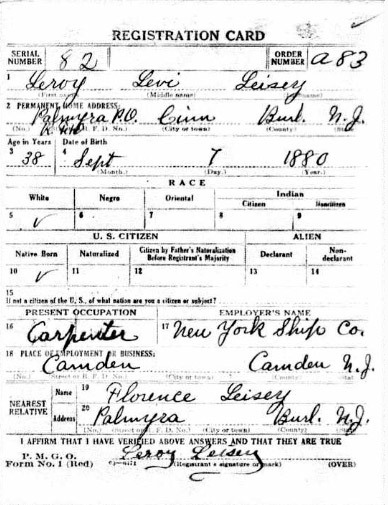 REGISTRATION CARD
SERIAL NUMBER 82 ORDER NUMBER A83
1 Leroy Levi Leisey
(First name) (Middle name) (Last name)
2 PERMANENT HOME ADDRESS:
Palmyra P.O. Cinn Burl. N.J.
(No.) (Street or R. F. D. No.) (City or town) (County) (State)
Age in Years Date of Birth
3 38 4 Sept 7 1880
(Month.) (Day.) (Year.)
RACE
White Negro Oriental Indian
Citizen Noncitizen
5 ✓ 6 7 8 9
U. S. CITIZEN ALIEN
Native Born Naturalized Citizen by Father's Naturalization Before Registrant's Majority Declarant Non-declarant
10 ✓ 11 12 13 14
15
If not a citizen of the U. S., of what nation are you a citizen or subject?
PRESENT OCCUPATION EMPLOYER'S NAME
16 Carpenter 17 New York Ship Co.
18 PLACE OF EMPLOYMENT OR BUSINESS:
Camden Camden N.J.
(No.) (Street or R. F. D. No.) (City or town) (County) (State)
NEAREST RELATIVE Name 19 Florence Leisey
Address 20 Palmyra Burl. N.J.
(No.) (Street or R. F. D. No.) (City or town) (County) (State)
I AFFIRM THAT I HAVE VERIFIED ABOVE ANSWERS AND THAT THEY ARE TRUE
P. M. G. O.
Form No. 1 (Red) Leroy Leisey
(Registrant's signature or mark) (OVER)